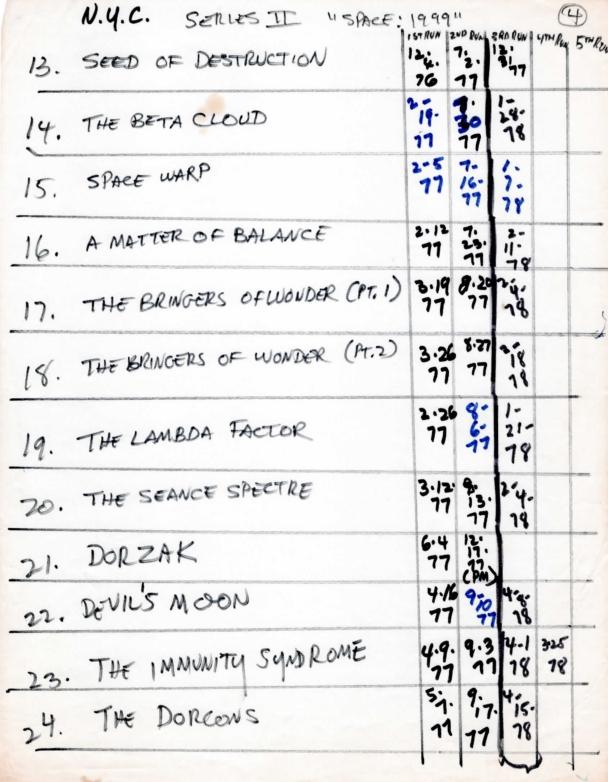 N.Y.C. SERIES II "SPACE: 1999" 4
1ST RUN 2ND RUN 3RD RUN 4TH RUN 5TH RUN
13. SEED OF DESTRUCTION 12. 4. 76 7. 2. 77 12. 31 77
14. THE BETA CLOUD 2- 19- 77 30 77 1- 28- 78
15. SPACE WARP 2-5 77 7- 16- 77 1- 7- 78
16. A MATTER OF BALANCE 2.12 77 7. 23. 77 2- 11- 78
17. THE BRINGERS OF WONDER (PT. 1) 3.19 77 8.20 77 4- 78
18. THE BRINGERS OF WONDER (PT. 2) 3.26 77 8.27 77 18 78
19. THE LAMBDA FACTOR 2.26 77 8- 6- 77 1- 21- 78
20. THE SEANCE SPECTRE 3.12. 77 8. 13. 77 2- 4- 78
21. DORZAK 6.4 77 12. 17. 77 (PM)
22. DEVIL'S MOON 4.16 77 9- 10 77 4- 8- 78
23. THE IMMUNITY SYNDROME 4.9. 77 9.3 77 4-1 78 3-25 78
24. THE DORCONS 5. 7. 77 9. 17. 77 4- 15- 78